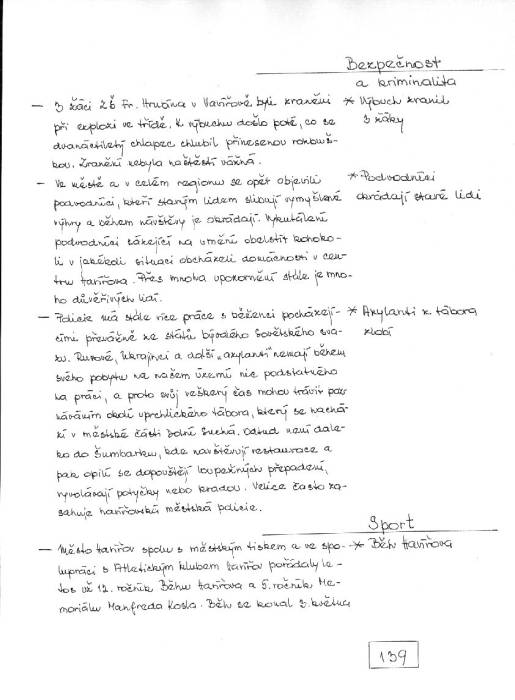 Bezpečnost
a kriminalita
— 3 žáci ZŠ Fr. Hrubína v Havířově byli zraněni
* Výbuch zranil
při explozi ve třídě. K výbuchu došlo poté, co se
3 žáky
dvanáctiletý chlapec chlubil přinesenou rozbuš-
kou. Zranění nebyla naštěstí vážná.
— Ve městě a v celém regionu se opět objevili
* Podvodníci
podvodníci, kteří starým lidem slibují vymyšlené
okrádají staré lidi
výhry a během návštěvy je okrádají. Vykutálení
podvodníci sázející na umění obelstít kohoko-
li v jakékoli situaci obcházeli domácnosti v cen-
tru Havířova. Přes mnoha upozornění stále je mno-
ho důvěřivých lidí.
— Policie má stále více práce s běženci pocházejí-
* Azylanti z tábora
cími převážně ze států bývalého Sovětského sva-
zlobí
zu. Rusové, Ukrajinci a další „azylanti" nemají během
svého pobytu na našem území nic podstatného
na práci, a proto svůj veškerý čas mohou trávit poz-
náváním okolí uprchlického tábora, který se nachá-
zí v městské části Dolní Suchá. Odtud není dale-
ko do Šumbarku, kde navštěvují restaurace a
pak opilí se dopouštějí loupežných přepadení,
vyvolávají potyčky nebo kradou. Velice často za-
sahuje havířovská městská policie.
Sport
— Město Havířov spolu s městským tiskem a ve spo-
* Běh Havířova
lupráci s Atletickým klubem Havířov pořádaly le-
tos už 12. ročník Běhu Havířova a 5. ročník Me-
moriálu Manfreda Kosla. Běh se konal 3. května
139